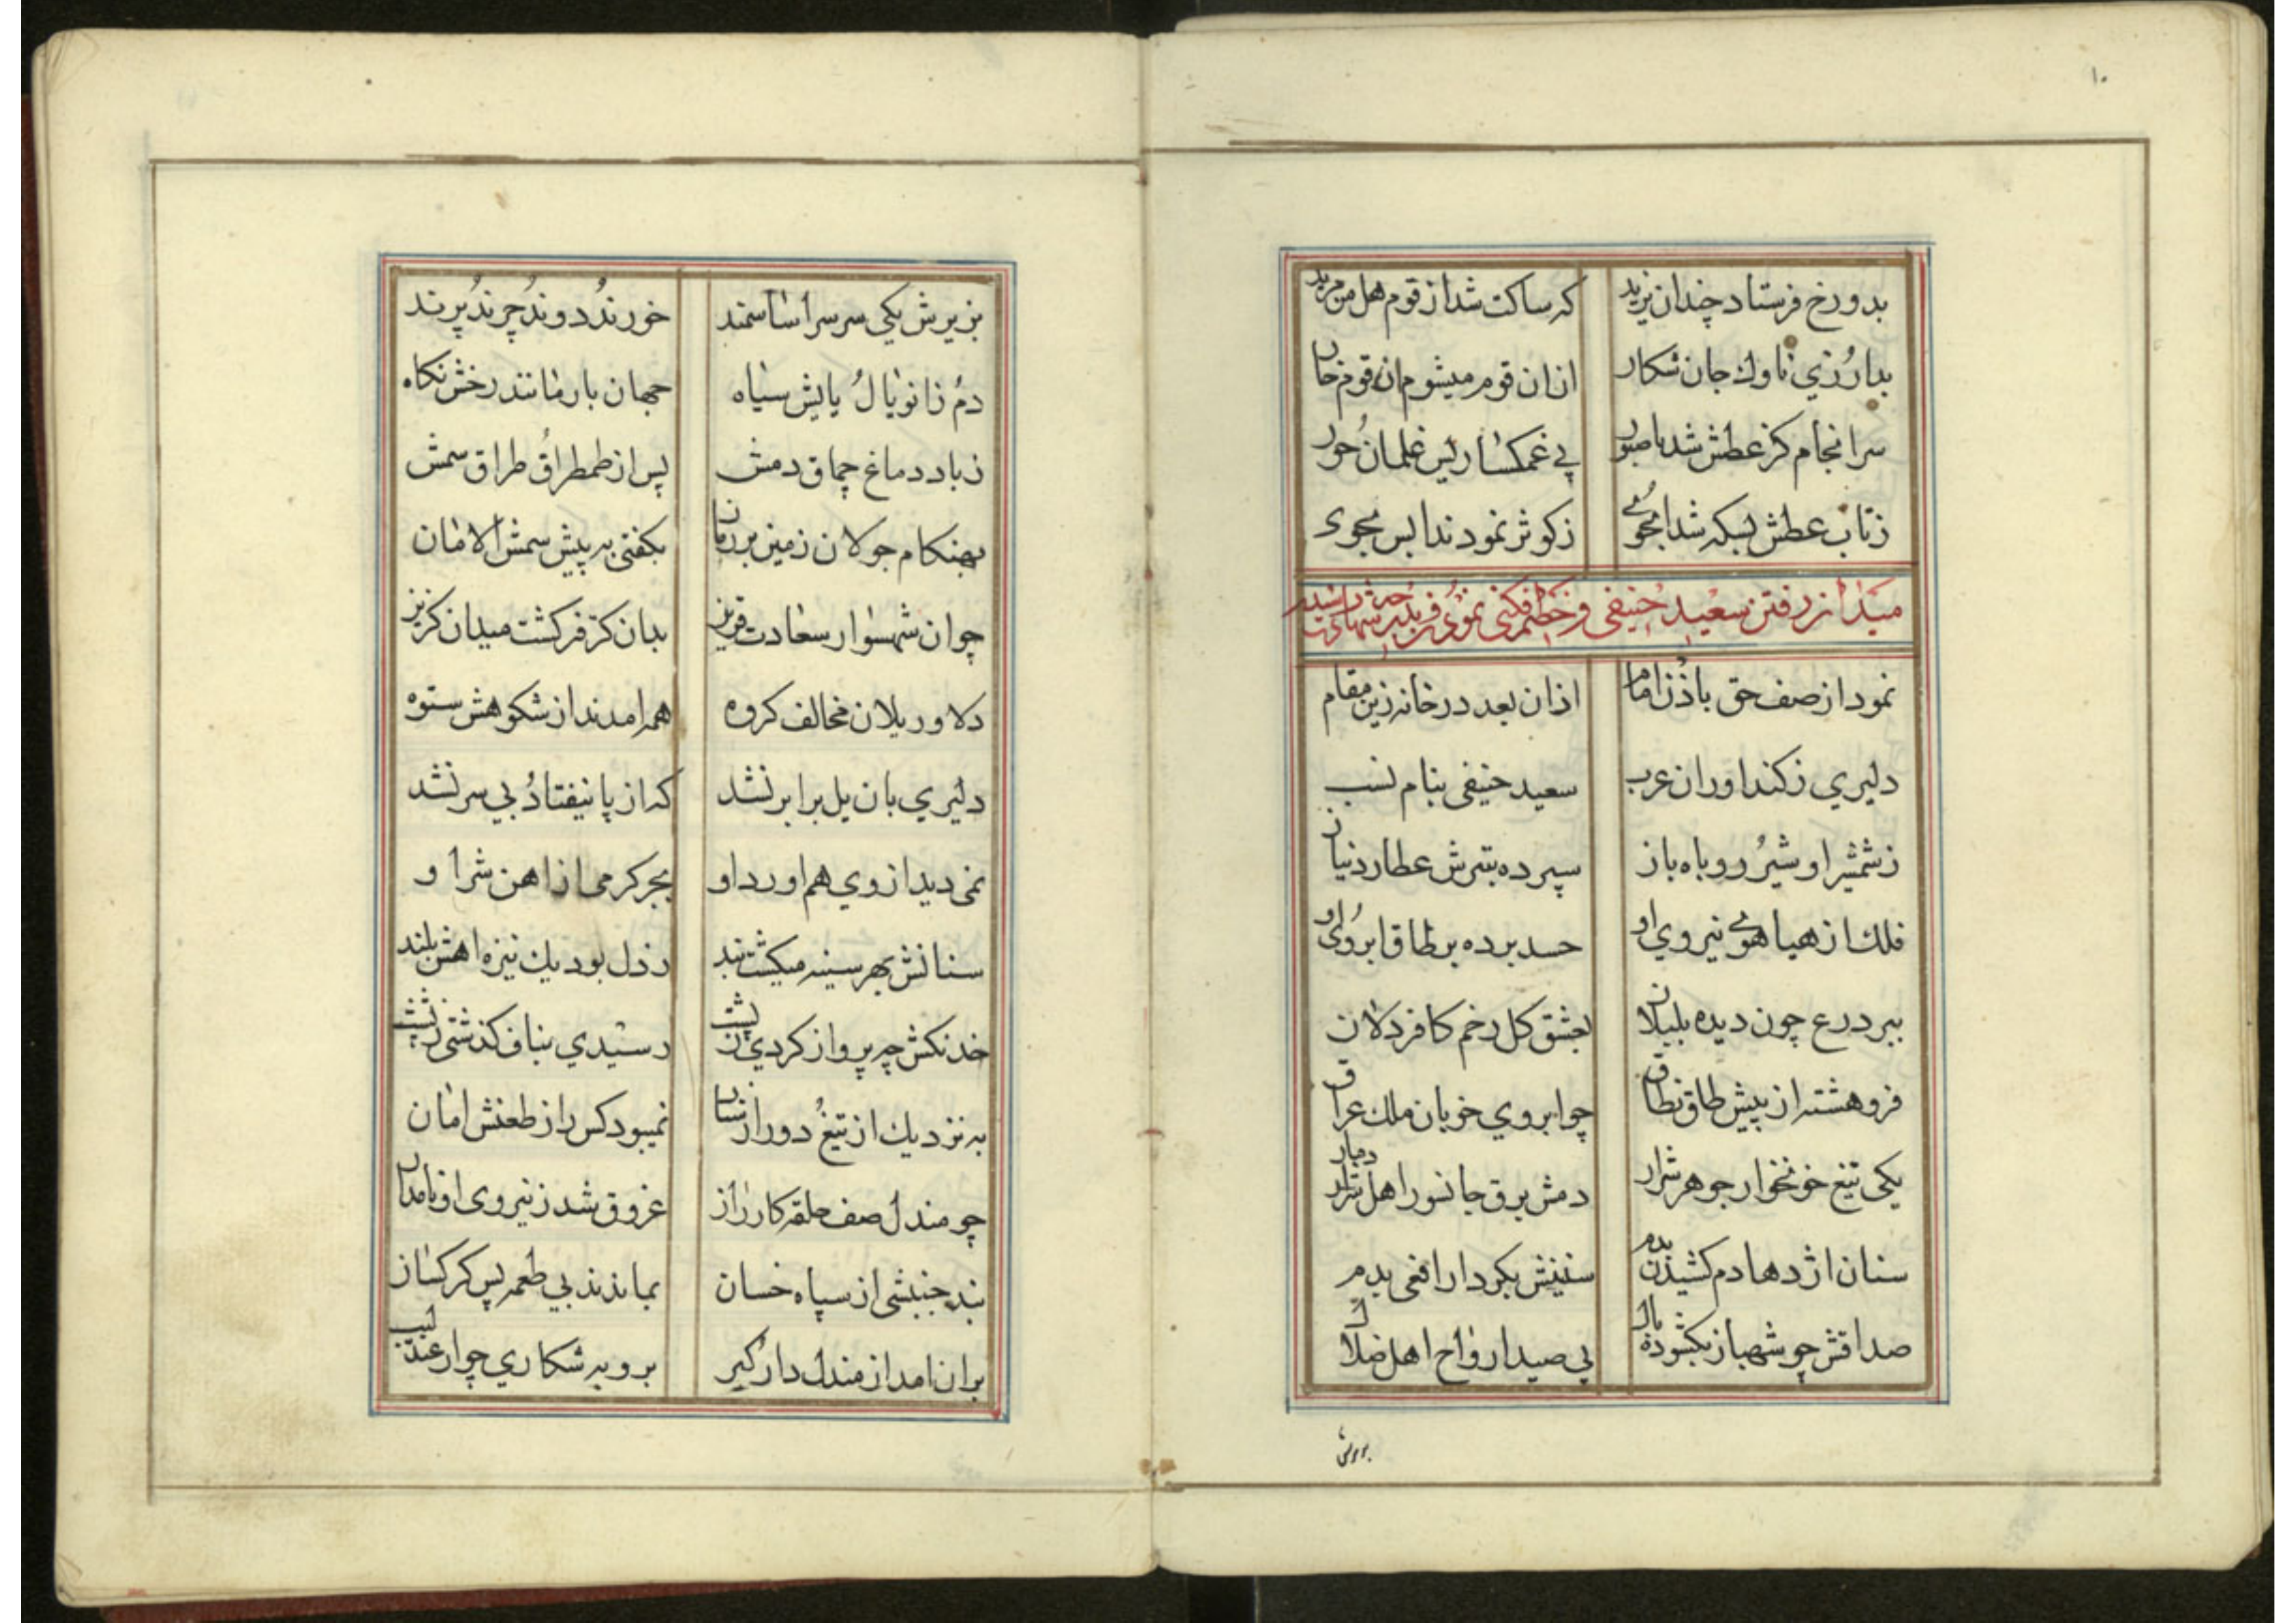 ۱۰
بدورخ فرستاد چندان یزید
که ساکت شد از قوم هل من مزید
بدارزنی ناوك جان شکار
ازان قوم میشوم ان قوم خار
سرانجام کز عطش شد ناصبور
پی غمکسارلیس غلمان حور
زتاب عطش لبسکه شد امجوی
زکوثر نمودند ابس بجوی
میدان رفتن سعید حنیفی و
نمود از صف حق باذن امام
ازان بعد در خانه زین مقام
دلیری زکنداوران عرب
سعید حنیفی بنام نسب
زشمشیر او شیر و روباه باز
سپرده بتیرش عطارد نیان
فلك از هیاهوی نیروی او
حسد برده بر طاق ابروی او
ببر درع چون دیده بلبلان
بعشق کل زخم کافر دلان
فروهشته از پیش طاق نطاق
چو ابروی خوبان ملك عراق
یکی تیغ خونخوار جوهر شرار
دمش برق جانسور اهل
سنان اژدها دم کشیدن بدم
سنینش بکردار افعی بدم
صداقش چو شهباز بکشوده بال
پی صید ارواح اهل ضلال
بزیرش یکی سرسر اسا سمند
خورند دوند چرند پرند
دم زانو یال یایش سیاه
جهان بار مانند رخش نکاه
زباد دماغ چماق دمش
پس از طمطراق طراق سمش
بهنکام جولان زمین بر زمان
بکفتی به پیش سمش الامان
چو ان شهسوار سعادت قریز
بدان کر فر کشت میدان کریز
دلاور یلان مخالف کروه
همه امدند از شکوهش ستوه
دلیری بان یل برابر نشد
که از پا نیفتاد بی سر نشد
نمی دید از وی هم اورد او
بجز کرمی از اهن شرا و
سنانش بهر سینه میکشت بند
زدل بود یك نیزه اهش بلند
خدنکش چه پرواز کردی زشت
رسیدی بناف کذشتی زپشت
به نزدیك از تیغ دور از سنان
نمیبود کس را از طعنش امان
چو مندل صف حلقه کارزار
غزوق شد زنیروی او نامدار
بند جنبشی از سپاه خسان
بماندند بی طعمه پس کرکسان
بران امد از مندل دار کیر
بروبه شکاری چو ار